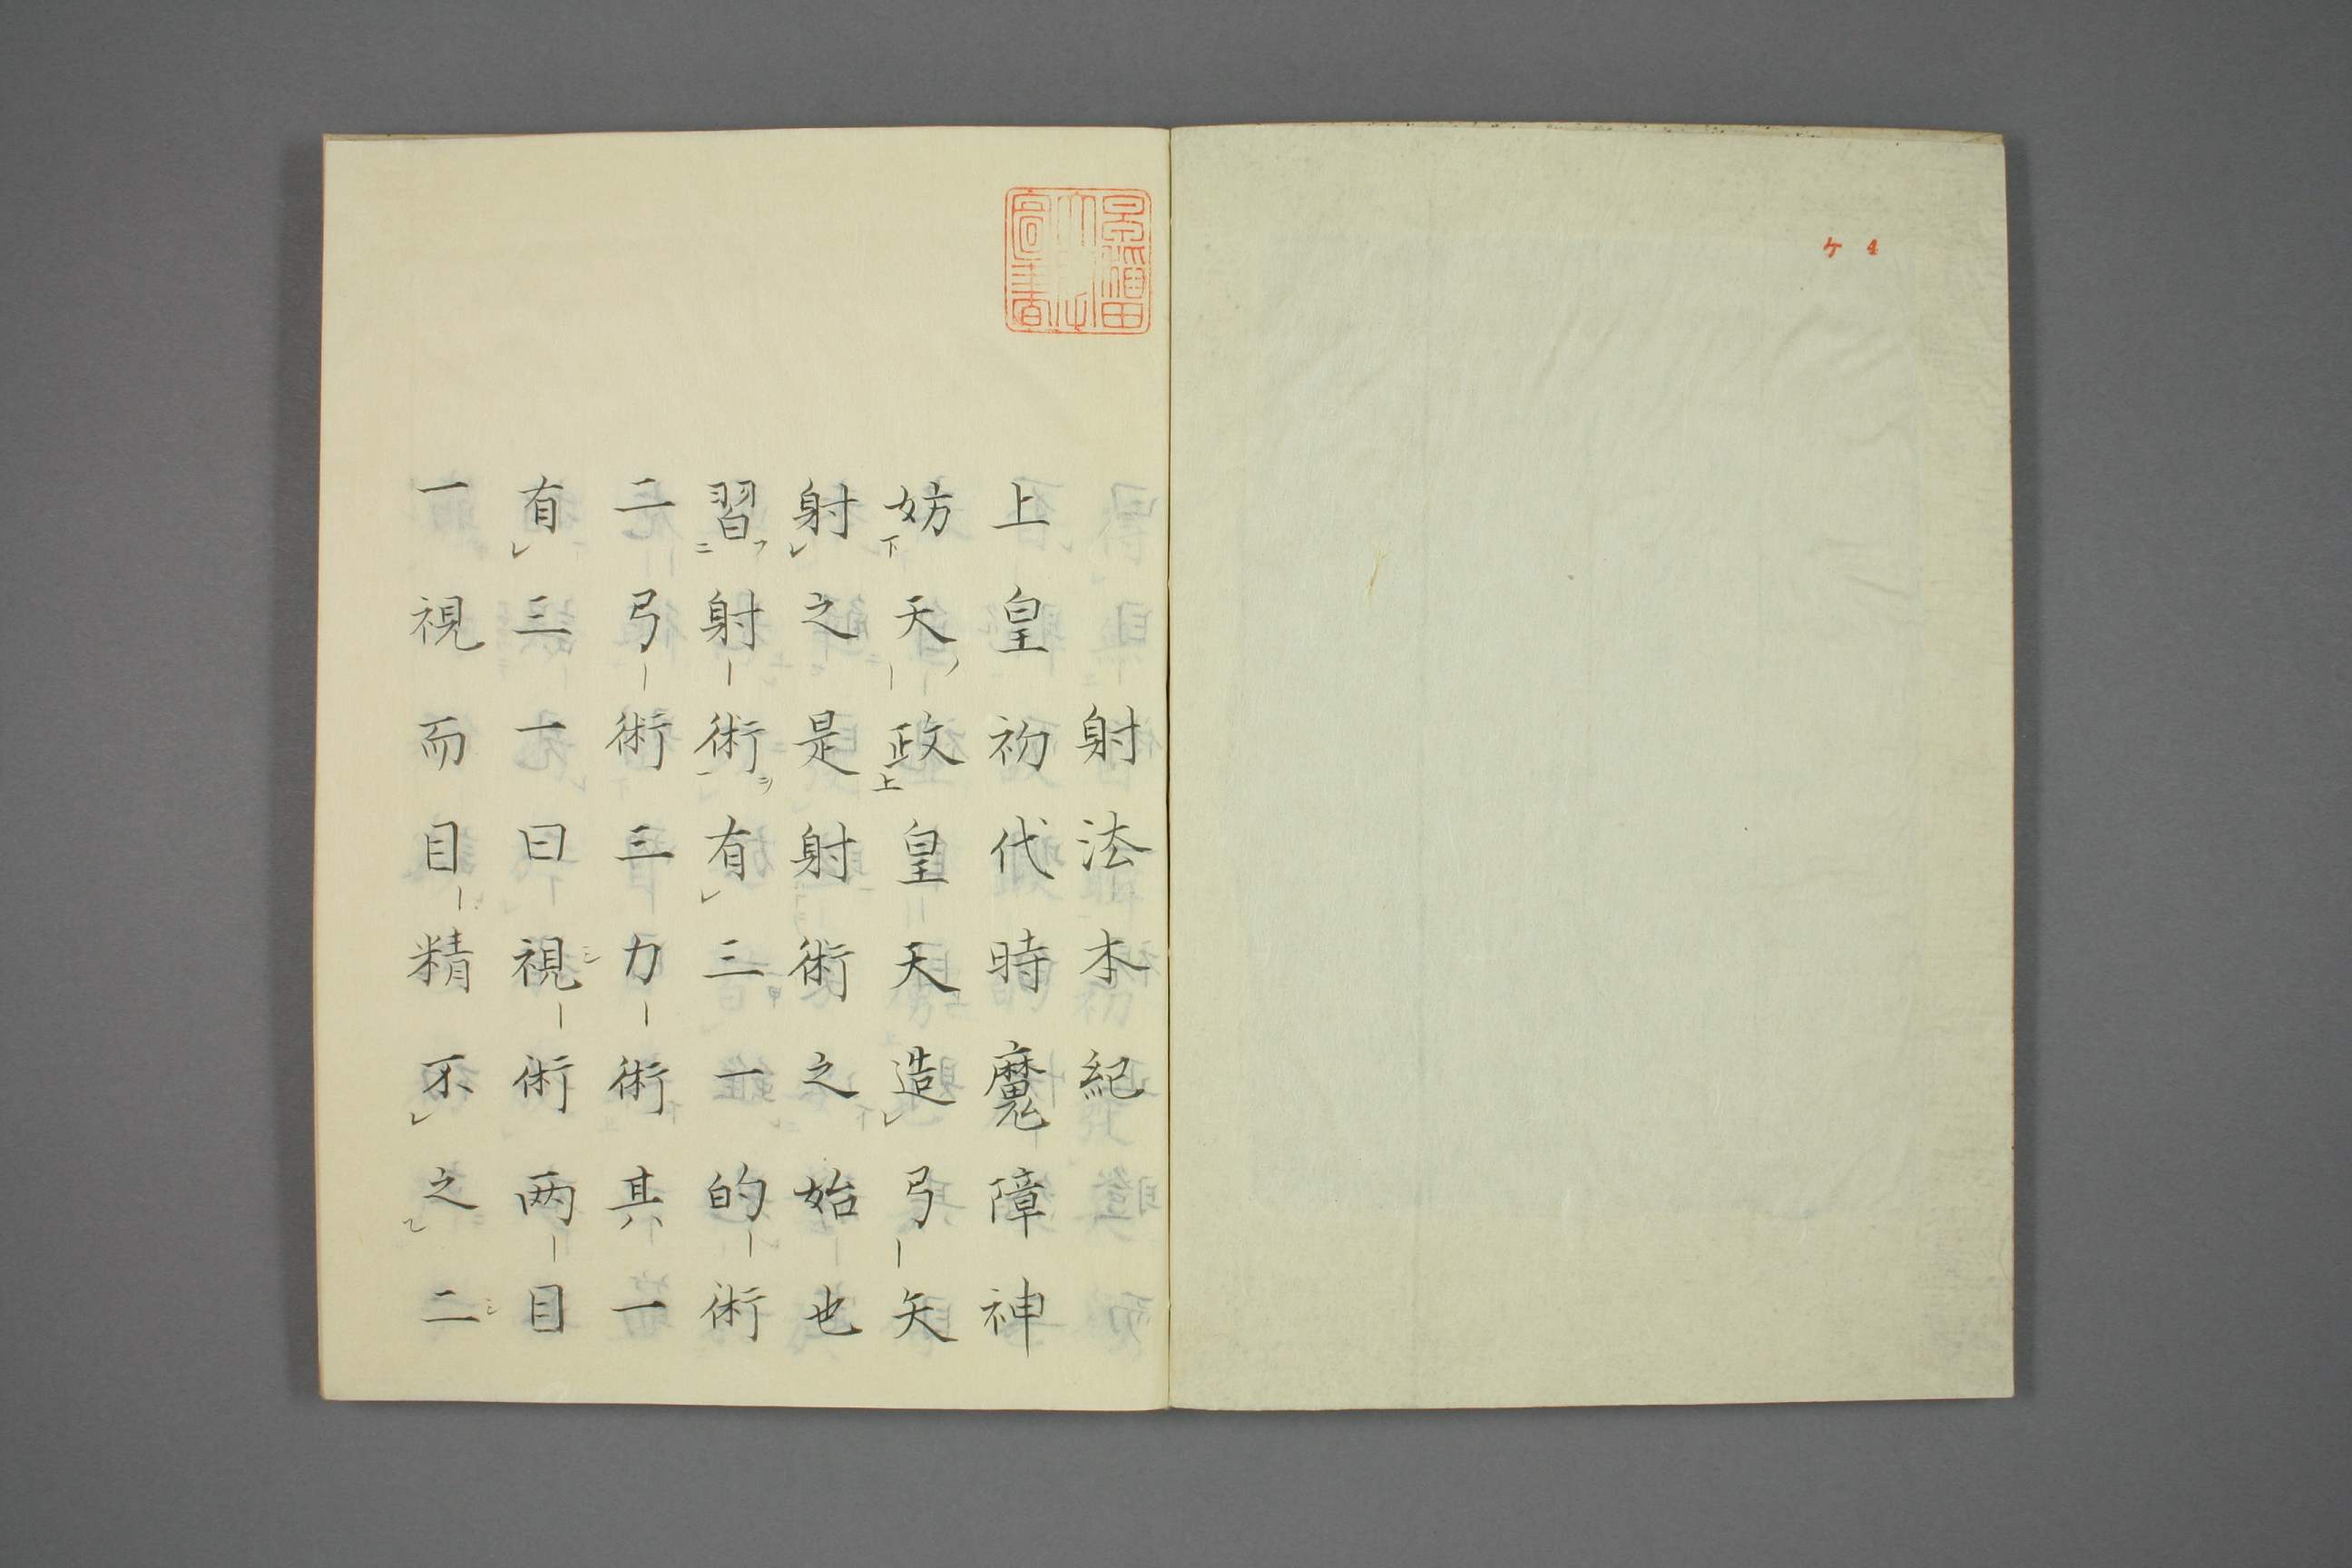 ケ 4
早稲田大学図書
射法本紀
上皇初代時魔障神
妨天政皇天造弓矢
射之是射術之始也
習射術有三一的術
二弓術三力術其一
有三一曰視術两目
一視而目精不之二